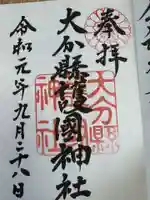 奉拝
大分縣護國神社
大分縣
神社
令和元年九月二十八日